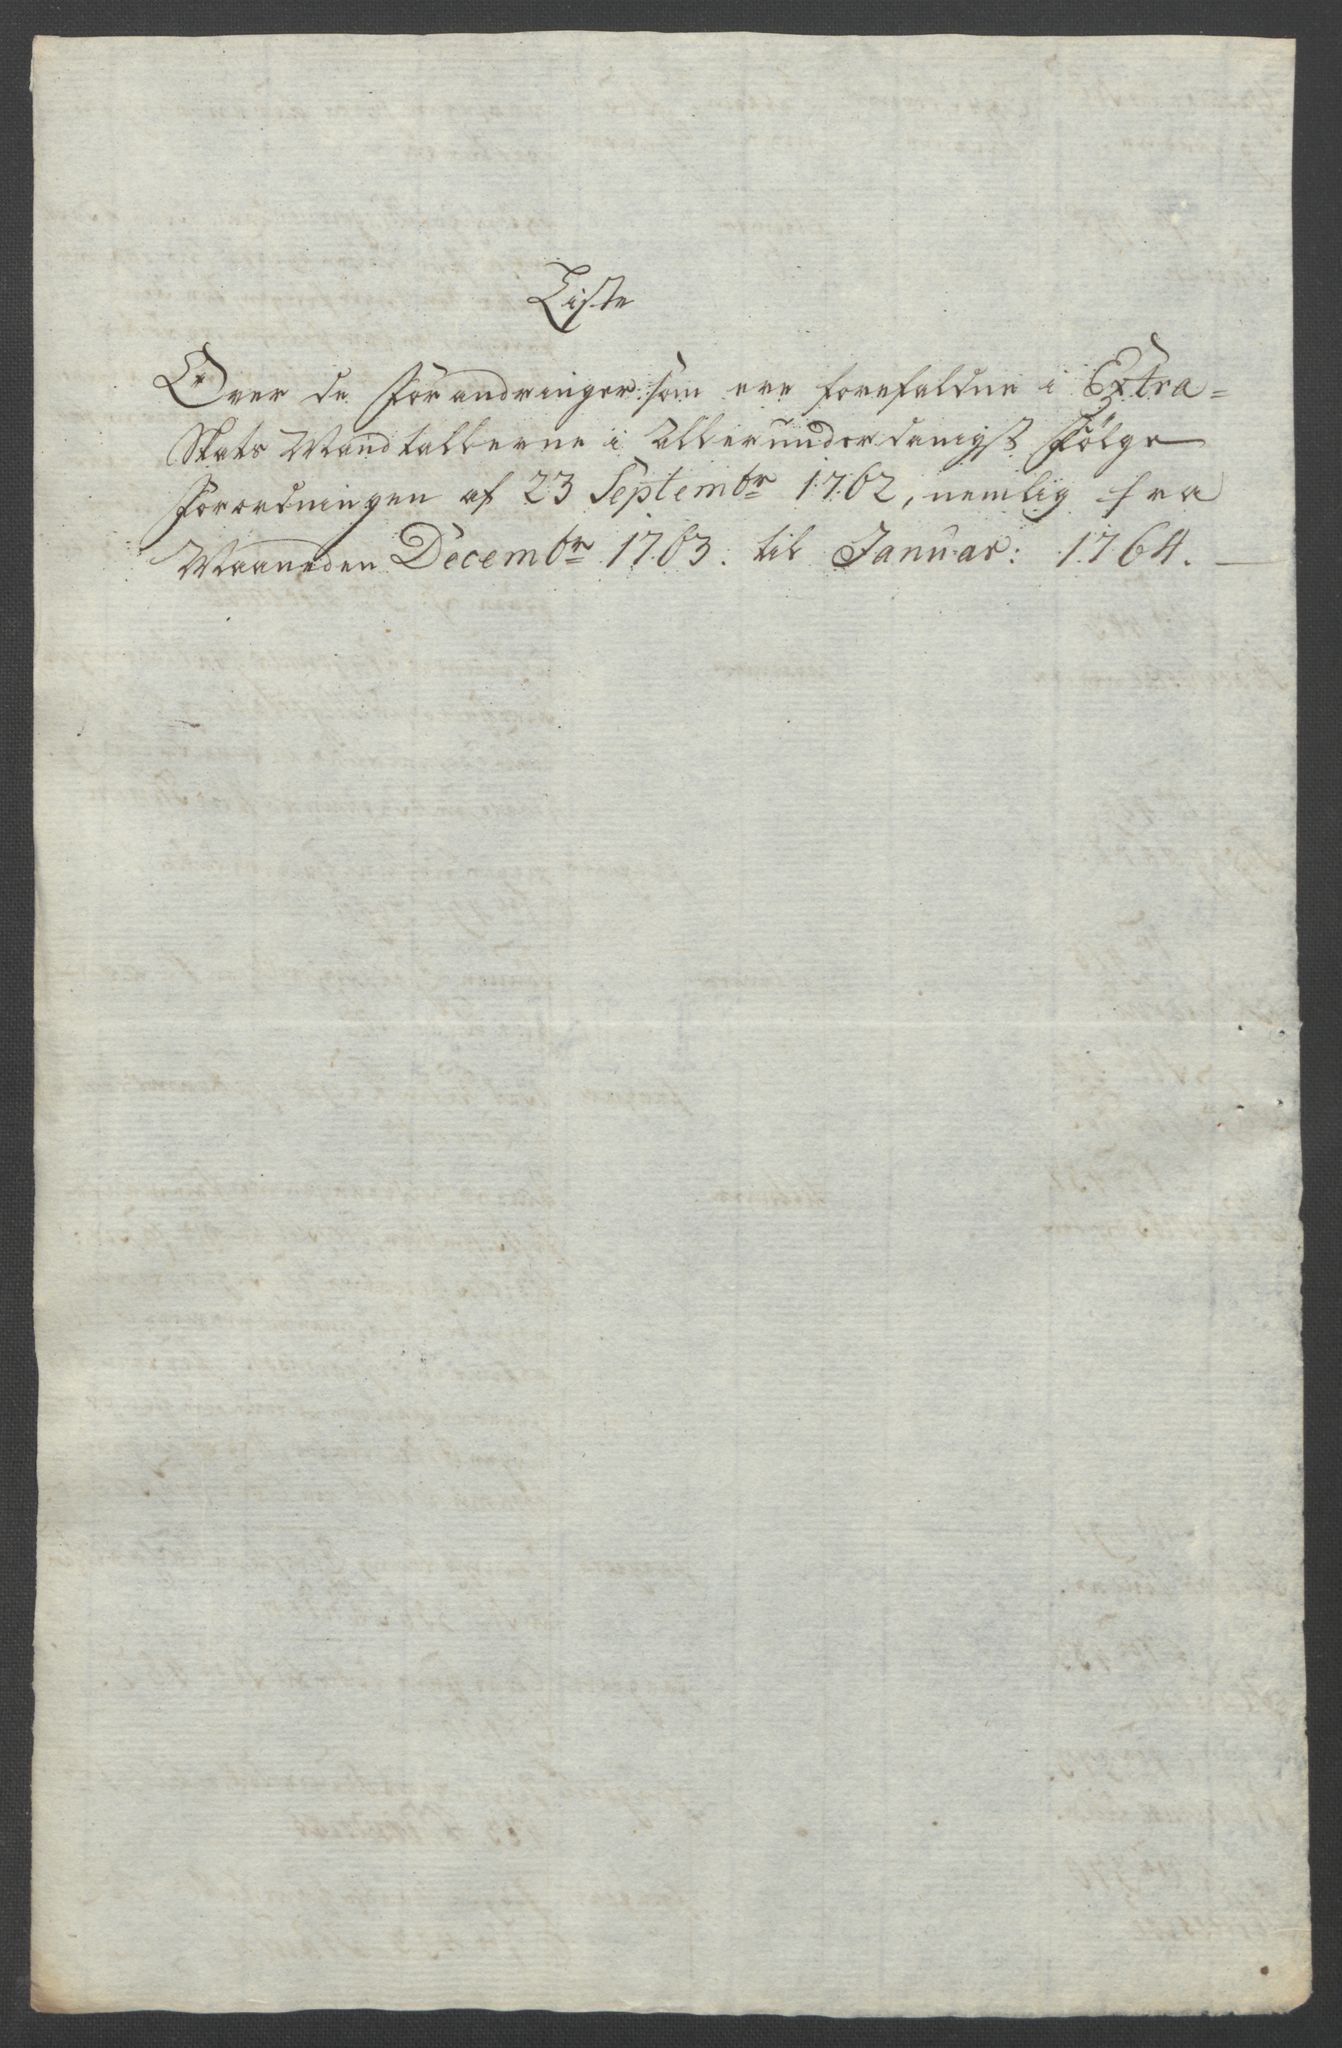 Liste
Over de Forandringer som ere forefaldne i Extra=
Skats Mandtallerne i Allerunderdanigst Følge
Forordningen af 23 Septembr 1762, nemlig fra
Maaneden Decembr 1763. til Januar: 1764.